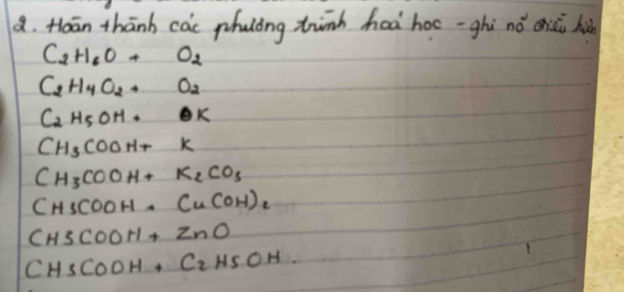 2. Hoàn thành các phương trình hoá học - ghi rõ điều kiện
C2H6O + O2
C2H4O2 + O2
C2H5OH + K
CH3COOH + K
CH3COOH + K2CO3
CH3COOH + Cu(OH)2
CH3COOH + ZnO
CH3COOH + C2H5OH.